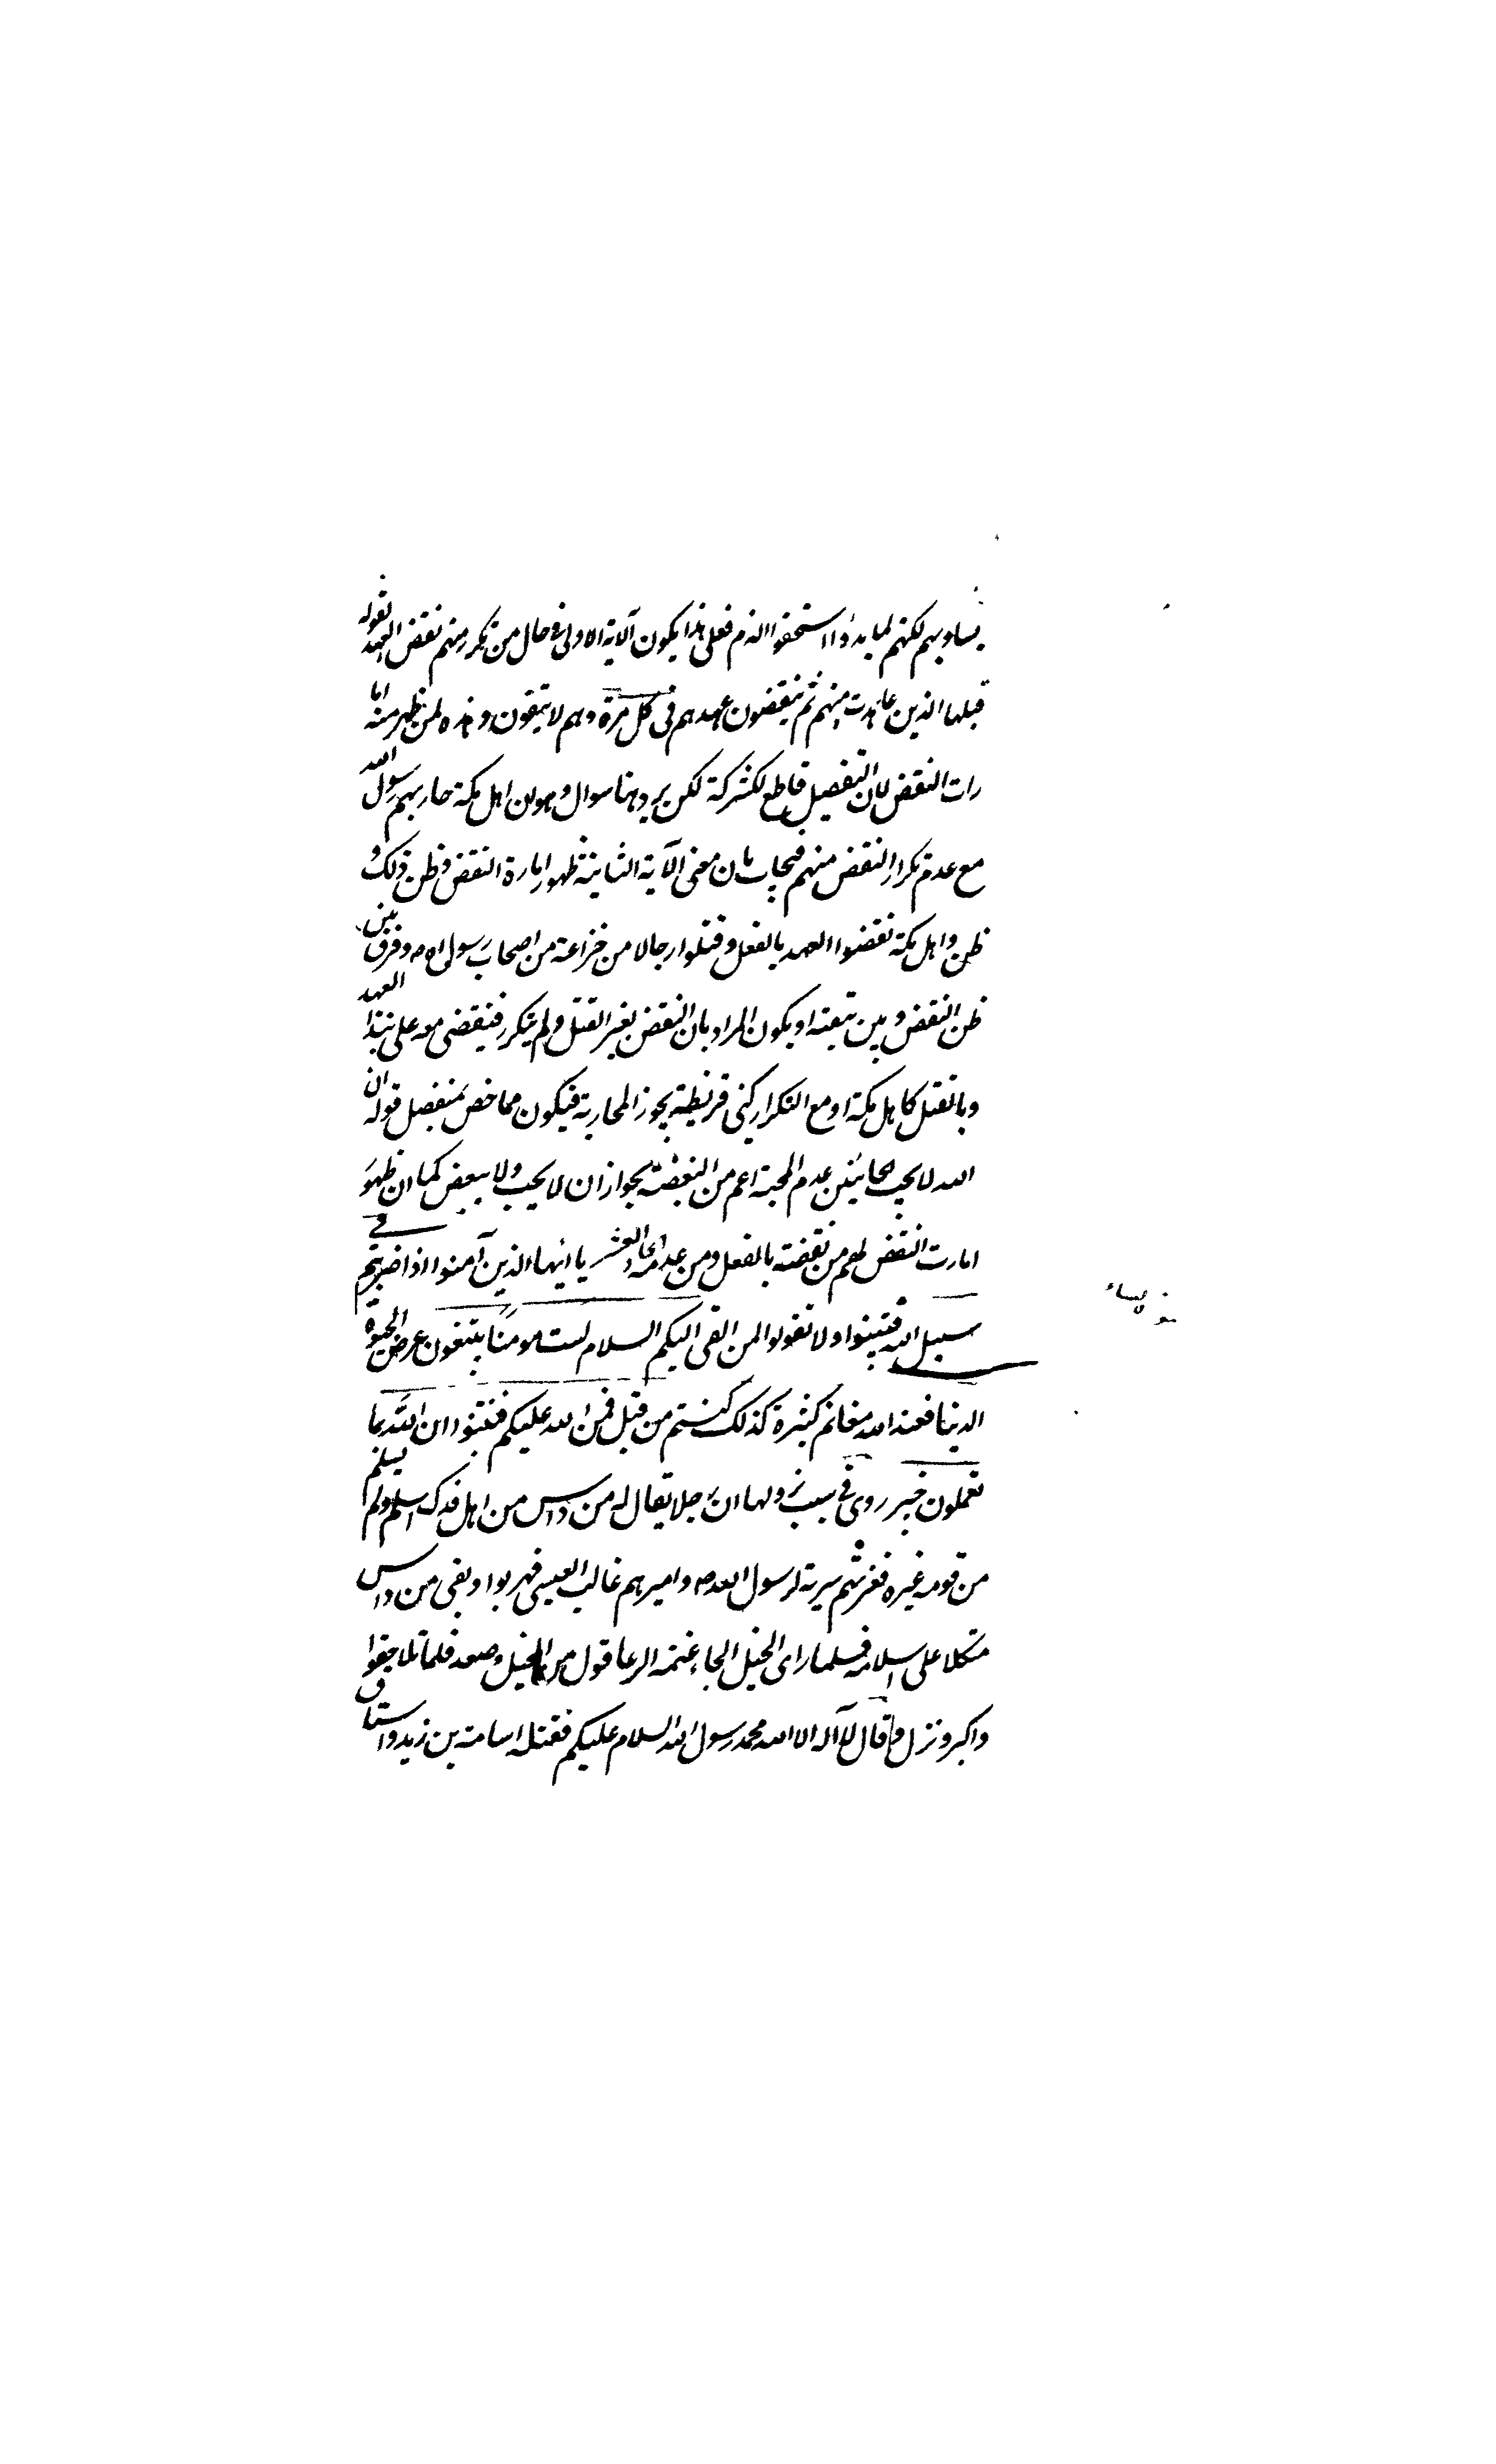 يساويهم لكنهم لما بدؤا استحقوا الذم فعلى هذا يكون الآية الاولى في حال من تكرر منهم نقض العهد لقوله
قبلها الذين عاهدت منهم ثم ينقضون عهدهم في كل مرة وهم لا يتقون وهذه لمن ظهر منه اما
رات النقض لان التفصيل قاطع للشركة لكن يرد هنا سوال وهو ان اهل مكة حاربهم رسول الله
مع عدم تكرار النقض منهم فيجاب بان معنى الآية الثانية ظهور امارة النقض وظن ذلك و
ظن واهل مكة نقضوا العهد بالفعل وقتلوا رجالا من خزاعة من اصحاب رسول الله ص وفرق بين
ظن النقض وبين تيقنه او يكون المراد بان النقض بغير القتل ولم يتكرر فيقضى معه على نبذ العهد
وبالقتل كاهل مكة او مع التكرار كبنى قريظة يجوز المحاربة فيكون مما خص بمنفصل قوله ان
الله لا يحب الخائنين عدم المحبة اعم من البغضة بجواز ان لا يحب ولا يبغض كما ان ظهور
امارت النقض اعم من نقضه بالفعل ومن عدمه يا ايها الذين آمنوا اذا ضربتم في
سبيل الله فتبينوا ولا تقولوا لمن القى اليكم السلام لست مومنا تبتغون عرض الحيوة
الدنيا فعند الله مغانم كثيرة كذلك كنتم من قبل فمن الله عليكم فتبينوا ان الله بما
تعملون خبير روى في سبب نزولها ان رجلا يقال له مرداس من اهل فدك اسلم ولم يسلم
من قومه غيره فغزتهم سرية لرسول الله ص واميرهم غالب فهربوا وبقى مرداس
متكلا على اسلامه فلما راى الخيل الجاء غنمه الى عاقول من الجبل وصعد فلما تلاحقوا
واكبر ونزل وقال لا آله الا الله محمد رسول الله السلام عليكم فقتله اسامة بن زيد واستاق